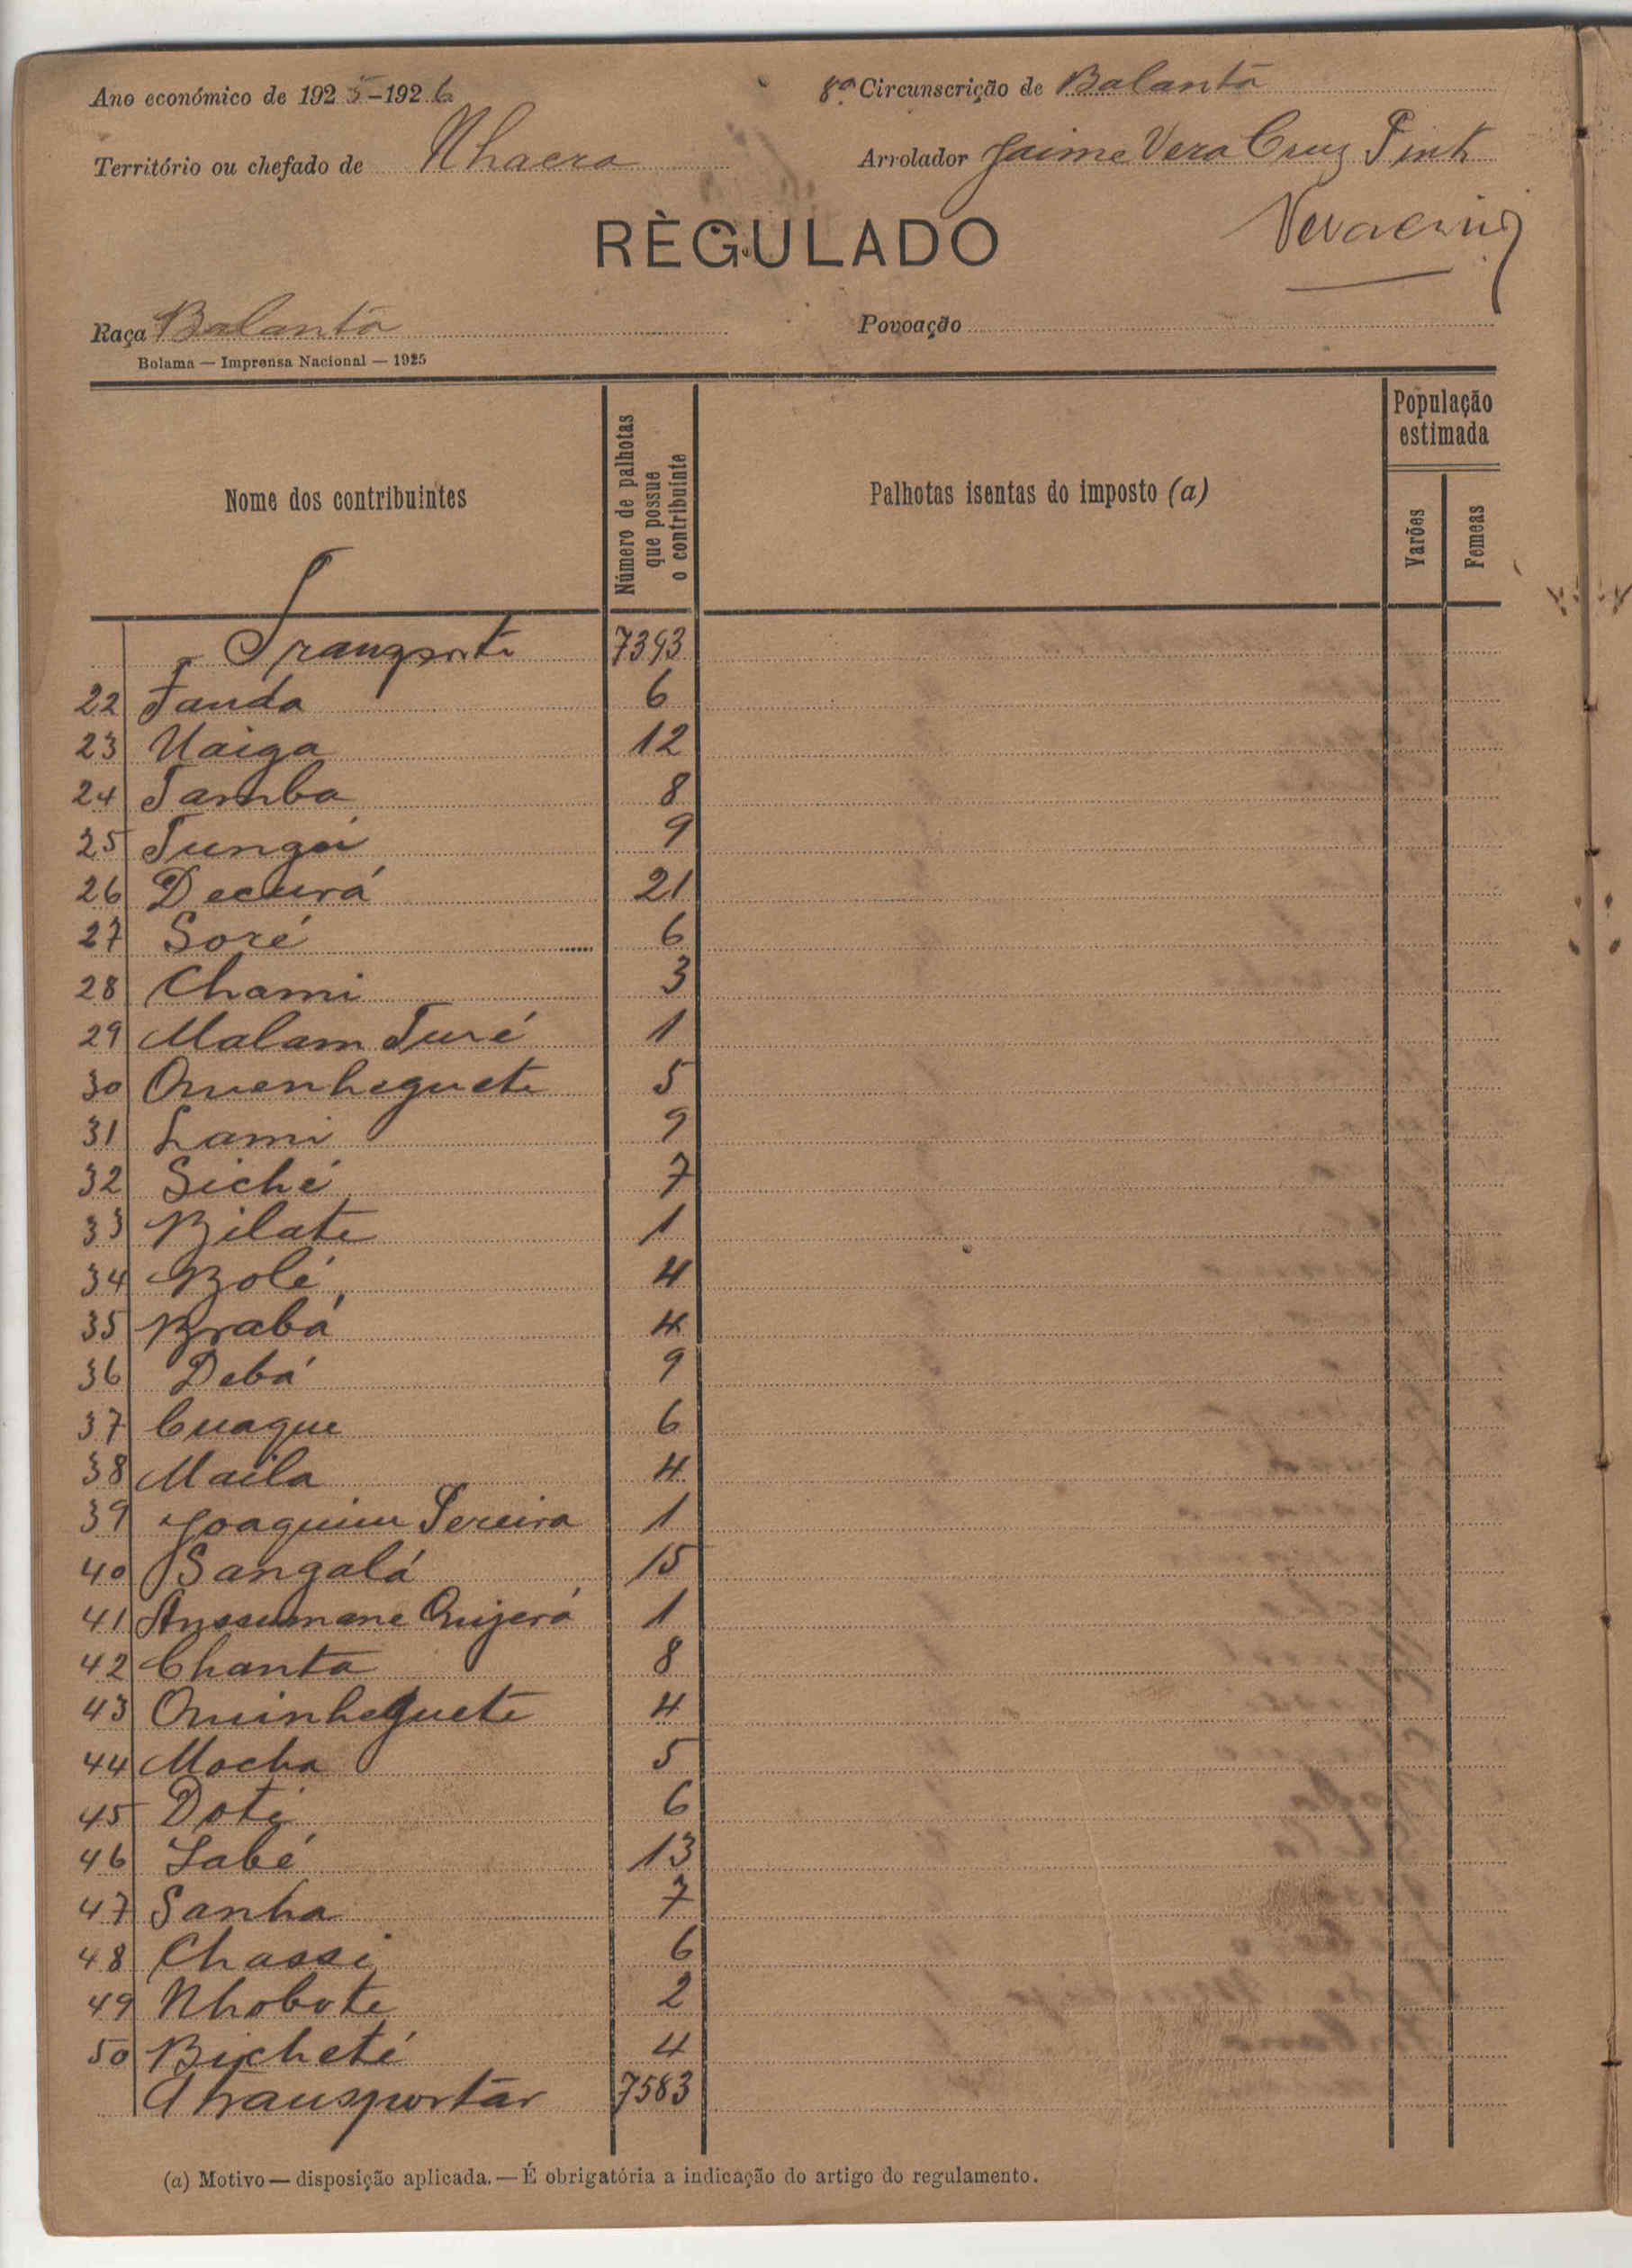 Ano económico de 1925-1926
8ª Circunscrição de Balanta
Território ou chefado de Nhacra
Arrolador Jaime Vera Cruz Pinto
RÈGULADO
Veracruz
Raça Balanta
Povoação
Bolama — Imprensa Nacional — 1925
Nome dos contribuintes
Número de palhotas que possue o contribuinte
Palhotas isentas do imposto (a)
População estimada
Varões
Femeas
Transporte 7393
22 Tanda 6
23 Uaiga 12
24 Tamba 8
25 Tungai 9
26 Decurá 21
27 Soré 6
28 Chami 3
29 Malam Turé 1
30 Quenheguete 5
31 Lami 9
32 Siché 7
33 Bilate 1
34 Bolé 4
35 Brabá 4
36 Debá 9
37 Cuaque 6
38 Maila 4
39 Joaquim Pereira 1
40 Sangalá 15
41 Anssumane Quejerá 1
42 Chanta 8
43 Quinheguete 4
44 Mocha 5
45 Doti 6
46 Labé 13
47 Sanha 7
48 Chassi 6
49 Nhobote 2
50 Bicheté 4
A transportar 7583
(a) Motivo — disposição aplicada. — É obrigatória a indicação do artigo do regulamento.